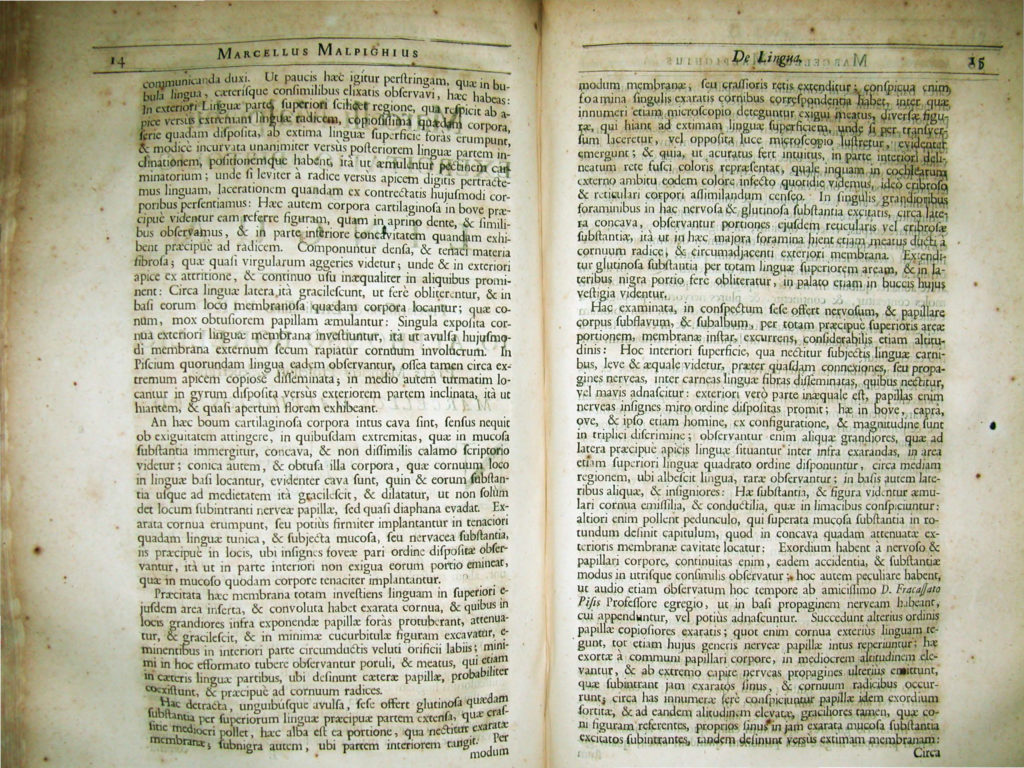 14 MARCELLUS MALPIGHIUS
communicanda duxi. Ut paucis hæc igitur perstringam, quæ in bu-
bula lingua, cæterisque consimilibus elixatis observavi, hæc habeas:
In exteriori Linguæ parte, superiori scilicet regione, qua respicit ab a-
pice versus extremam linguæ radicem, copiosissima quædam corpora,
serie quadam disposita, ab extima linguæ superficie foras erumpunt,
& modicè incurvata unanimiter versus posteriorem linguæ partem in-
clinationem, positionemque habent, ità ut æmulentur pectinem car-
minatorium; unde si leviter à radice versus apicem digitis pertracte-
mus linguam, lacerationem quandam ex contrectatis hujusmodi cor-
poribus persentiamus: Hæc autem corpora cartilaginosa in bove præ-
cipuè videntur eam referre figuram, quam in aprino dente, & simili-
bus observamus, & in parte inferiore concavitatem quandam exhi-
bent præcipuè ad radicem. Componuntur densa, & tenaci materia
fibrosa; quæ quasi virgularum aggeries videtur; unde & in exteriori
apice ex attritione, & continuo usu inæqualiter in aliquibus promi-
nent: Circa linguæ latera ità gracilescunt, ut ferè obliterentur, & in
basi eorum loco membranosa quædam corpora locantur; quæ co-
num, mox obtusiorem papillam æmulantur: Singula exposita cor-
nua exteriori linguæ membrana investiuntur, ità ut avulsa hujusmo-
di membrana externum secum rapiatur cornuum involucrum. In
Piscium quorundam lingua eadem observantur, ossea tamen circa ex-
tremum apicem copiosè disseminata; in medio autem turmatim lo-
cantur in gyrum disposita versus exteriorem partem inclinata, ità ut
hiantem, & quasi apertum florem exhibeant.
An hæc boum cartilaginosa corpora intus cava sint, sensus nequit
ob exiguitatem attingere, in quibusdam extremitas, quæ in mucosa
substantia immergitur, concava, & non dissimilis calamo scriptorio
videtur; conica autem, & obtusa illa corpora, quæ cornuum loco
in linguæ basi locantur, evidenter cava sunt, quin & eorum substan-
tia usque ad medietatem ità gracilescit, & dilatatur, ut non solùm
det locum subintranti nerveæ papillæ, sed quasi diaphana evadat. Ex-
arata cornua erumpunt, seu potius firmiter implantantur in tenaciori
quadam linguæ tunica, & subjecta mucosa, seu nervacea substantia,
iis præcipuè in locis, ubi insignes foveæ pari ordine dispositæ obser-
vantur, ità ut in parte interiori non exigua eorum portio emineat,
quæ in mucoso quodam corpore tenaciter implantantur.
Præcitata hæc membrana totam investiens linguam in superiori e-
jusdem area inserta, & convoluta habet exarata cornua, & quibus in
locis grandiores infra exponendæ papillæ foràs protuberant, attenua-
tur, & gracilescit, & in minimæ cucurbitulæ figuram excavatur, e-
minentibus in interiori parte circumductis veluti orificii labiis; mini-
mi in hoc efformato tubere observantur poruli, & meatus, qui etiam
in cæteris linguæ partibus, ubi desinunt cæteræ papillæ, probabiliter
coexistunt, & præcipuè ad cornuum radices.
Hac detracta, unguibusque avulsa, sese offert glutinosa quædam
substantia per superiorum linguæ præcipuæ partem extensa, quæ cras-
sitie mediocri pollet, hæc alba est ea portione, qua nectitur exaratæ
membranæ; subnigra autem, ubi partem interiorem tangit. Per
modum
De Lingua. 15
modum membranæ, seu crassioris retis extenditur; conspicua enim
foamina singulis exaratis cornibus correspondentia habet, inter quæ
innumeri etiam microscopio deteguntur exigui meatus, diversæ figu-
ræ, qui hiant ad extimam linguæ superficiem, unde si per transver-
sum laceretur, vel opposita luce microscopio lustretur, evidenter
emergunt; & quia, ut acuratus fert intuitus, in parte interiori deli-
neatum rete fusci coloris repræsentat, quale inquam in cochlearum
externo ambitu eodem colore infecto quotidie videmus, ideò cribroso
& reticulari corpori assimilandum censeo. In singulis grandioribus
foraminibus in hac nervosa & glutinosa substantia excitatis, circa late-
ra concava, observantur portiones ejusdem reticularis vel cribrosæ
substantiæ, ità ut in hæc majora foramina hient etiam meatus ducti à
cornuum radice, & circumadjacenti exteriori membrana. Extendi-
tur glutinosa substantia per totam linguæ superiorem aream, & in la-
teribus nigra portio ferè obliteratur, in palato etiam in buccis hujus
vestigia videntur.
Hac examinata, in conspectum sese offert nervosum, & papillare
corpus subflavum, & subalbum, per totam præcipuè superioris areæ
portionem, membranæ instar, excurrens, considerabilis etiam altitu-
dinis: Hoc interiori superficie, qua nectitur subjectis linguæ carni-
bus, leve & æquale videtur, præter quasdam connexiones, seu propa-
gines nerveas, inter carneas linguæ fibras disseminatas, quibus nectitur,
vel mavis adnascitur: exteriori verò parte inæquale est, papillas enim
nerveas insignes miro ordine dispositas promit; hæ in bove, capra,
ove, & ipso etiam homine, ex configuratione, & magnitudine sunt
in triplici discrimine; observantur enim aliquæ grandiores, quæ ad
latera præcipuè apicis linguæ situantur inter infra exarandas, in area
etiam superiori linguæ quadrato ordine disponuntur, circa mediam
regionem, ubi albescit lingua, raræ observantur; in basis autem late-
ribus aliquæ, & insigniores: Hæ substantia, & figura videntur æmu-
lari cornua emissilia, & conductilia, quæ in limacibus conspiciuntur:
altiori enim pollent pedunculo, qui superata mucosa substantia in ro-
tundum desinit capitulum, quod in concava quadam attenuatæ ex-
terioris membranæ cavitate locatur: Exordium habent à nervoso &
papillari corpore, continuitas enim, eadem accidentia, & substantiæ
modus in utrisque consimilis observatur; hoc autem peculiare habent,
ut audio etiam observatum hoc tempore ab amicissimo D. Fracassato
Pisis Professore egregio, ut in basi propaginem nerveam habeant,
cui appenduntur, vel potius adnascuntur. Succedunt alterius ordinis
papillæ copiosiores exaratis; quot enim cornua exterius linguam te-
gunt, tot etiam hujus generis nerveæ papillæ intus reperiuntur; hæ
exortæ à communi papillari corpore, in mediocrem altitudinem ele-
vantur, & ab extremo capite nerveas propagines ulterius emittunt,
quæ subintrant jam exaratos sinus, & cornuum radicibus occur-
runt, circa has innumeræ ferè conspiciuntur papillæ idem exordium
sortitæ, & ad eandem altitudinem elevatæ, graciliores tamen, quæ co-
ni figuram referentes, proprios sinus in jam exarata mucosa substantia
excitatos subintrantes, tandem desinunt versus extimam membranam:
Circa